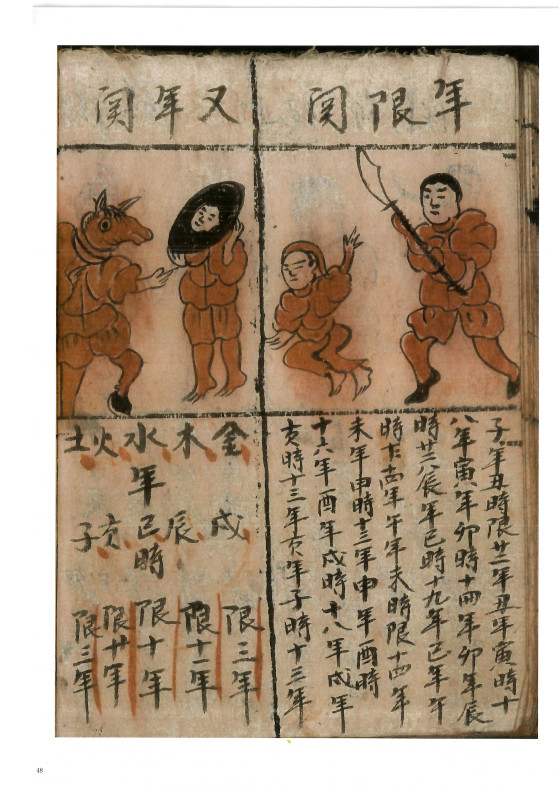 年限関
子年丑時限廿二年丑年寅時十
八年寅年卯時十四年卯年辰
時廿八辰年巳時十九年巳年午
時十五年午年未時限十四年
未年申時十三年申年酉時
十六年酉年戌時十八年戌年
亥時十三年亥年子時十三年
又年関
金木水火土
年
戌辰巳亥子
時
限三年
限十一年
限十年
限廿年
限三年
48